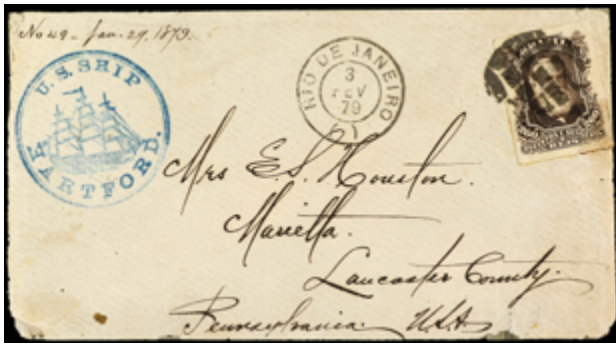 No 49 - Jan. 29, 1879.
U.S. SHIP
HARTFORD.
RIO DE JANEIRO
3
FEV
79
Mrs E. S. Houston.
Marietta.
Lancaster County.
Pennsylvania. U.S.A